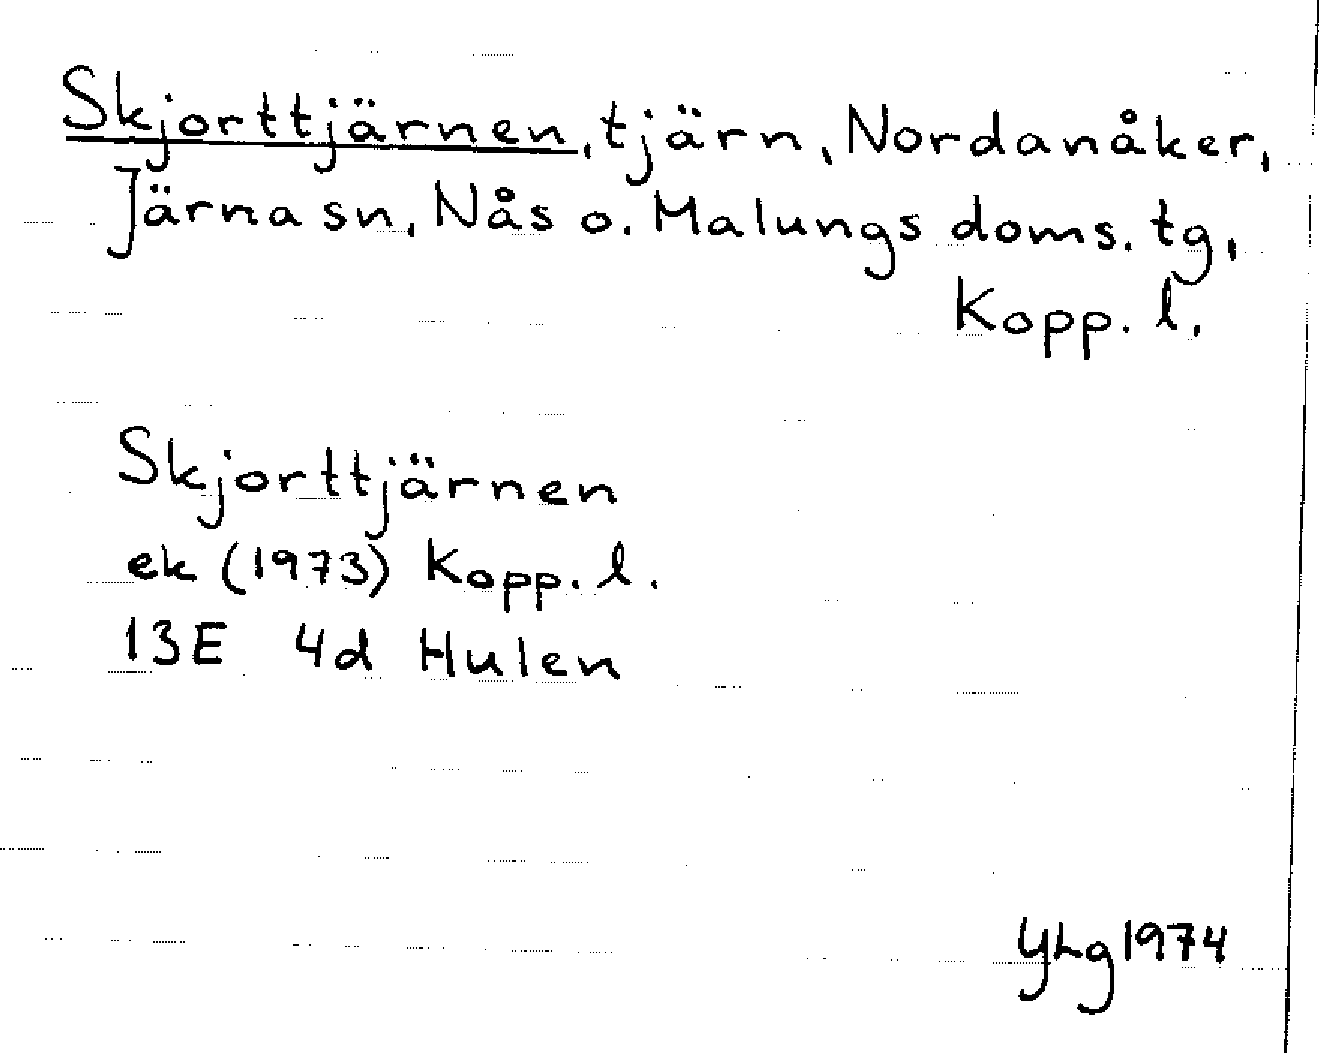 Skjorttjärnen, tjärn, Nordanåker,
Järna sn, Nås o. Malungs doms. tg,
Kopp. l.
Skjorttjärnen
ek (1973) Kopp. l.
13E 4d Hulen
YLg 1974